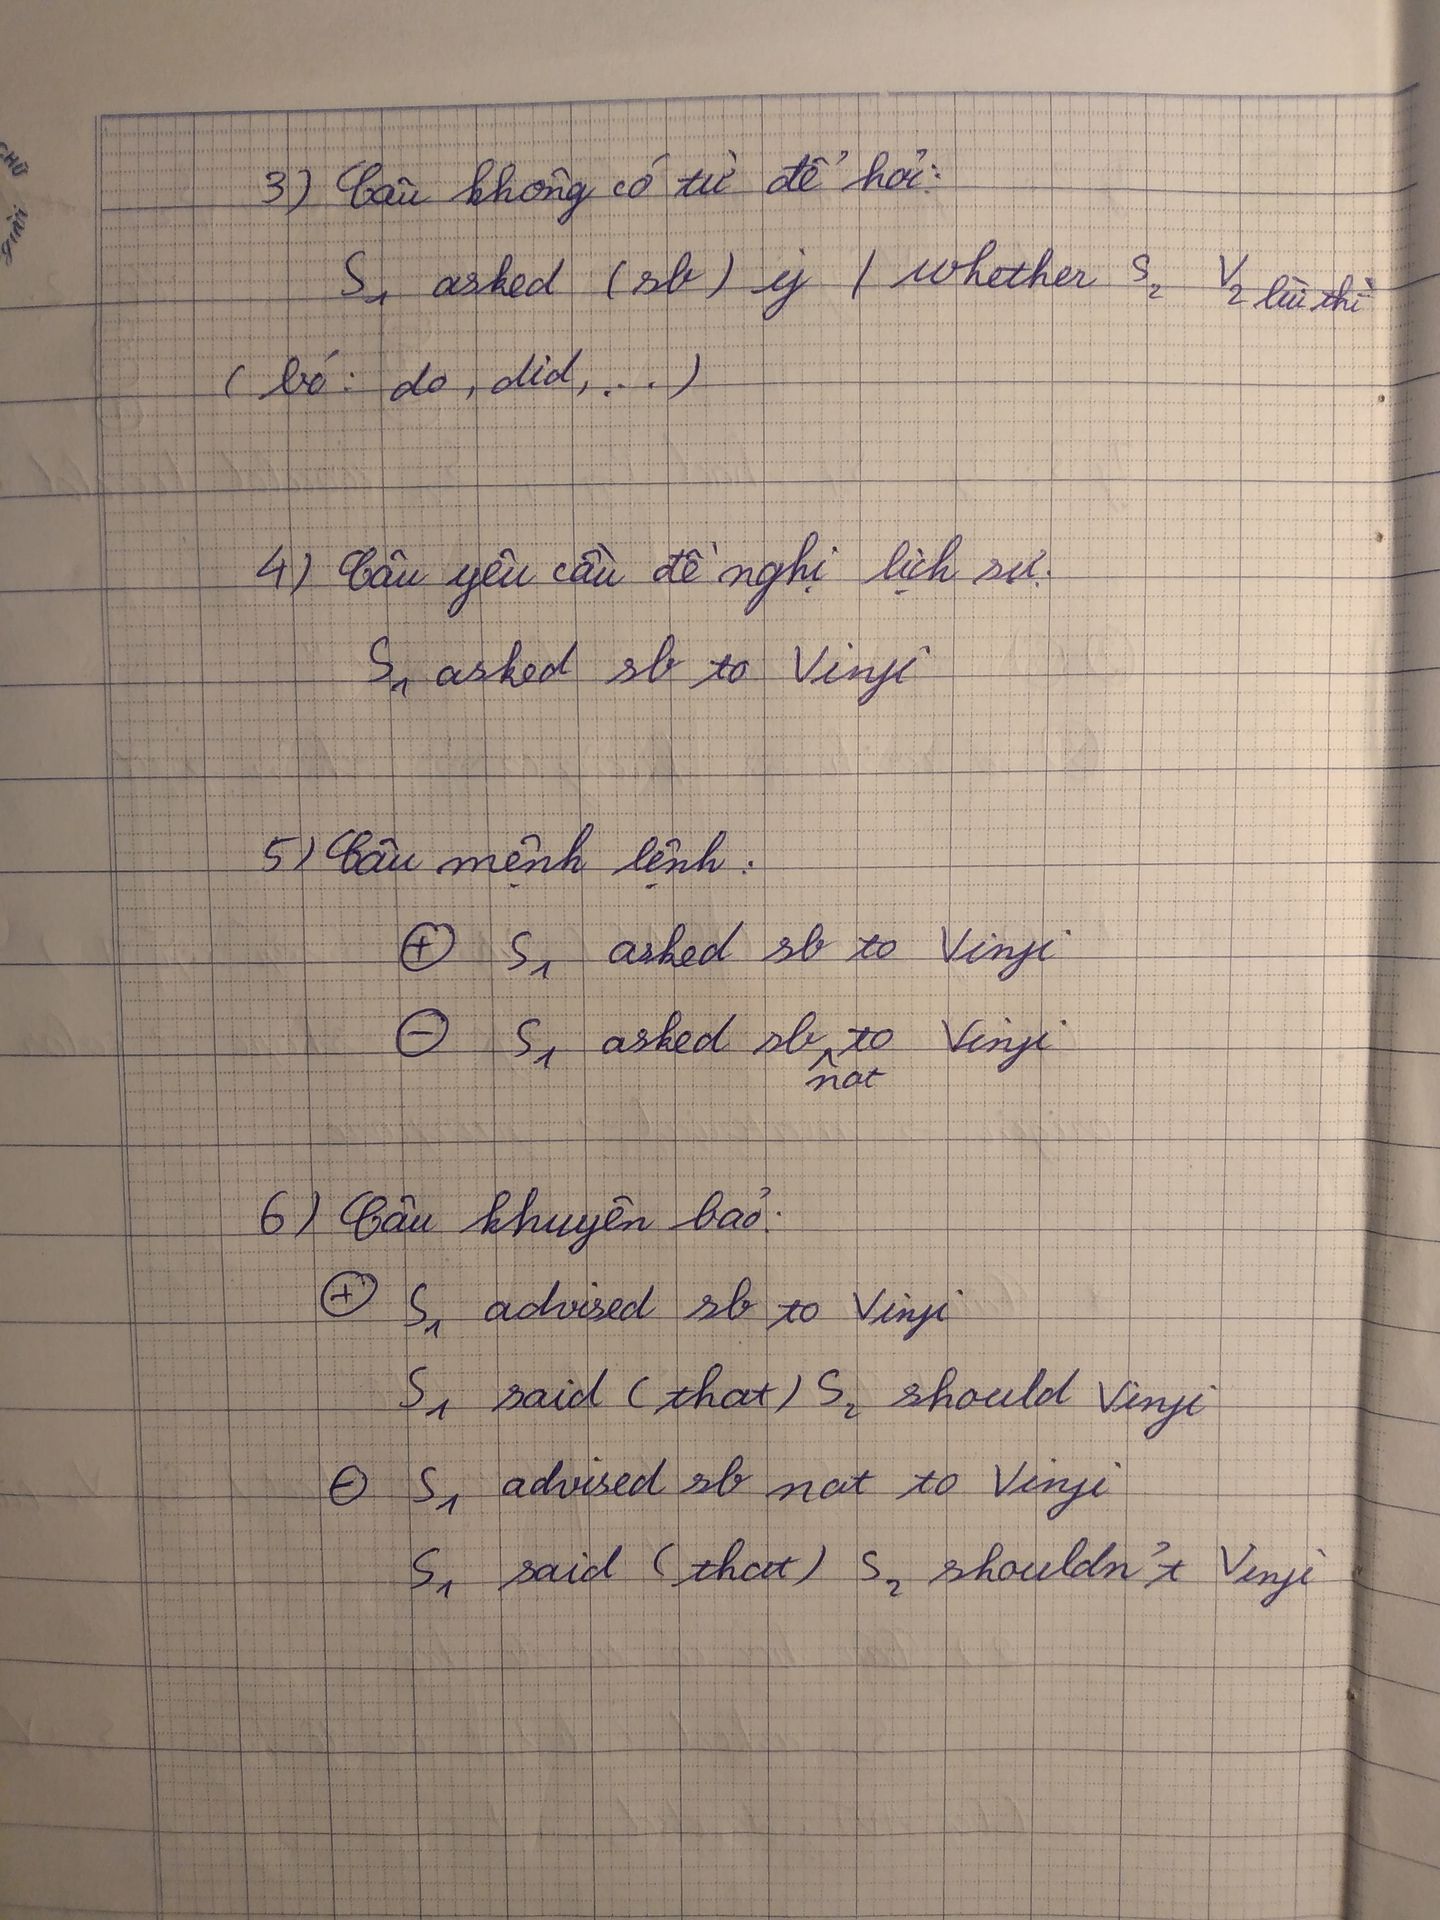 CHỮ
giải
3) Câu không có từ để hỏi:
S₁ asked (sb) if / whether S₂ V₂ lùi thì
( bỏ : do, did, ... )
4) Câu yêu cầu đề nghị lịch sự:
S₁ asked sb to Vinfi
5) Câu mệnh lệnh :
⊕ S₁ asked sb to Vinfi
⊖ S₁ asked sb ^ to Vinfi
not
6) Câu khuyên bảo:
⊕ S₁ advised sb to Vinfi
S₁ said (that) S₂ should Vinfi
⊖ S₁ advised sb not to Vinfi
S₁ said (that) S₂ shouldn't Vinfi